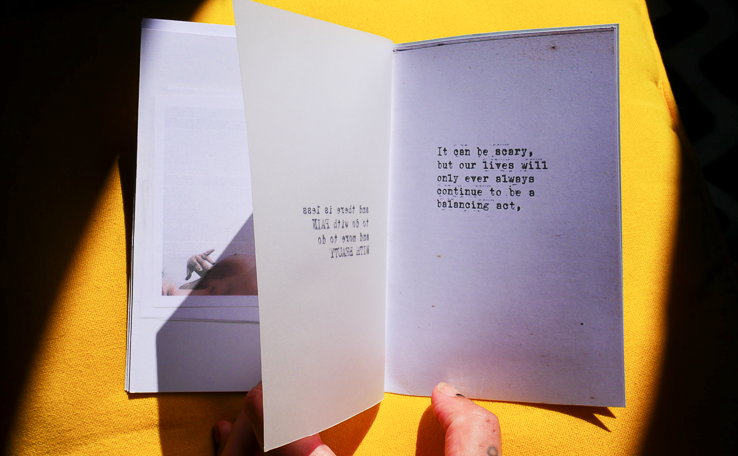 and there is less
to do with PAIN
and more to do
WITH BEAUTY
It can be scary,
but our lives will
only ever always
continue to be a
balancing act,